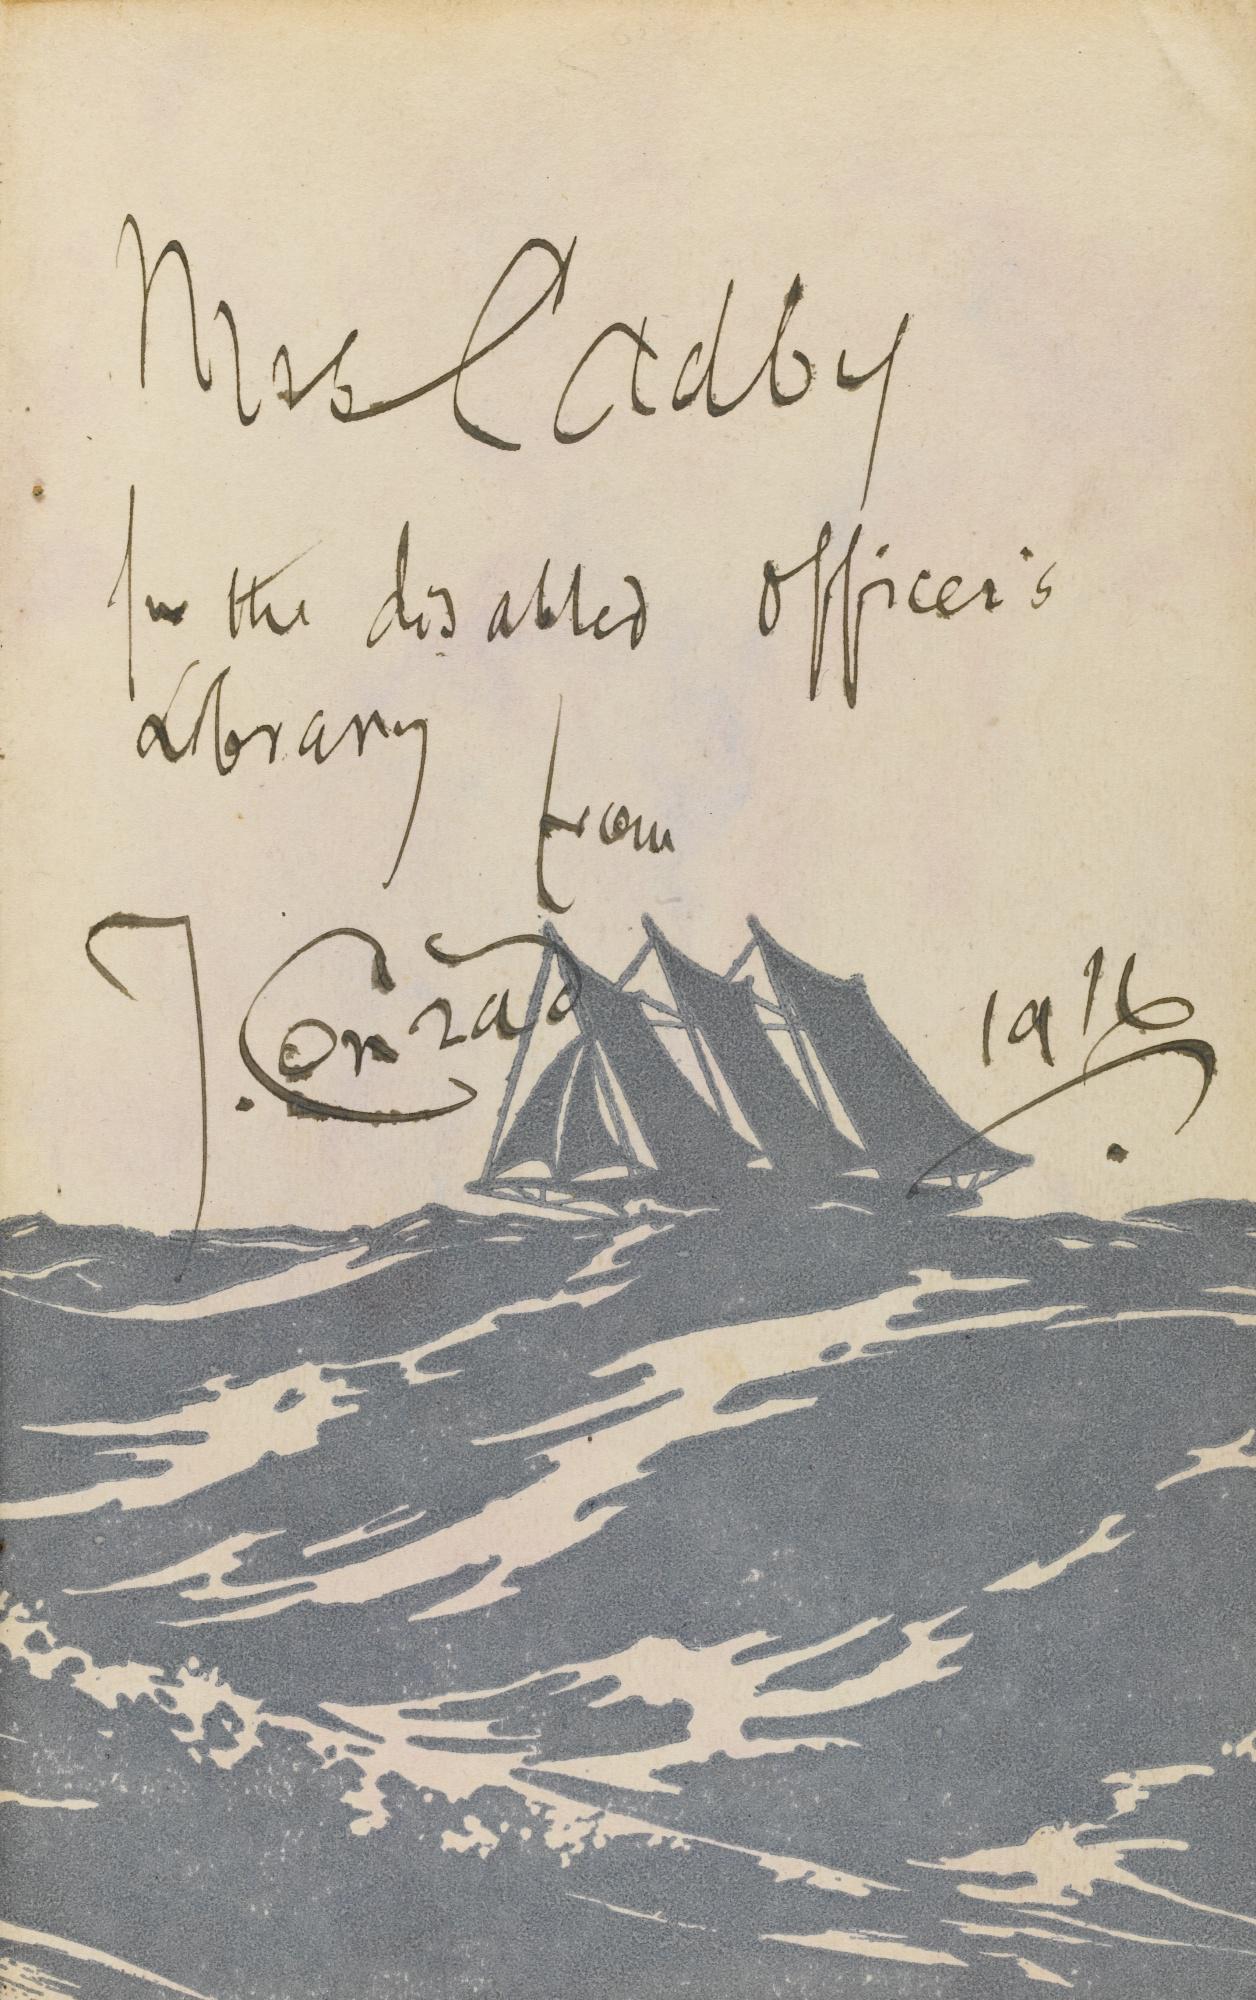 Mrs Cadby
for the disabled officer's
Library
from
J. Conrad 1916.